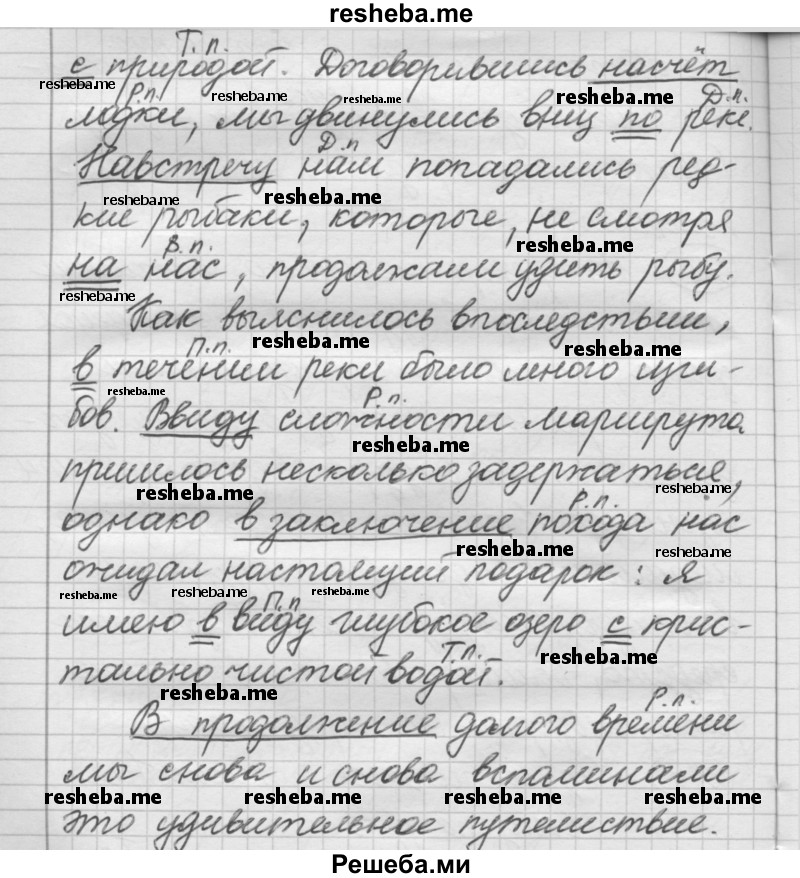 resheba.me
Т.п.
с природой. Договорившись насчёт
resheba.me
Р.п. resheba.me resheba.me resheba.me Д.п.
лодки, мы двинулись вниз по реке.
Д.п
Навстречу нам попадались ред-
resheba.me resheba.me resheba.me
кие рыбаки, которые, не смотря
В.п. resheba.me
на нас, продолжали удить рыбу.
resheba.me
Как выяснилось впоследствии,
П.п. resheba.me resheba.me
в течении реки было много изги-
resheba.me Р.п.
бов. Ввиду сложности маршрута
resheba.me
пришлось несколько задержаться,
resheba.me resheba.me
Р.п.
однако в заключение похода нас
resheba.me resheba.me
ожидал настоящий подарок: я
resheba.me resheba.me П.п resheba.me
имею в виду глубокое озеро с крис-
Т.п. resheba.me
тально чистой водой.
resheba.me
Р.п.
В продолжение долгого времени
мы снова и снова вспоминали
resheba.me resheba.me resheba.me resheba.me
это удивительное путешествие.
Решеба.ми